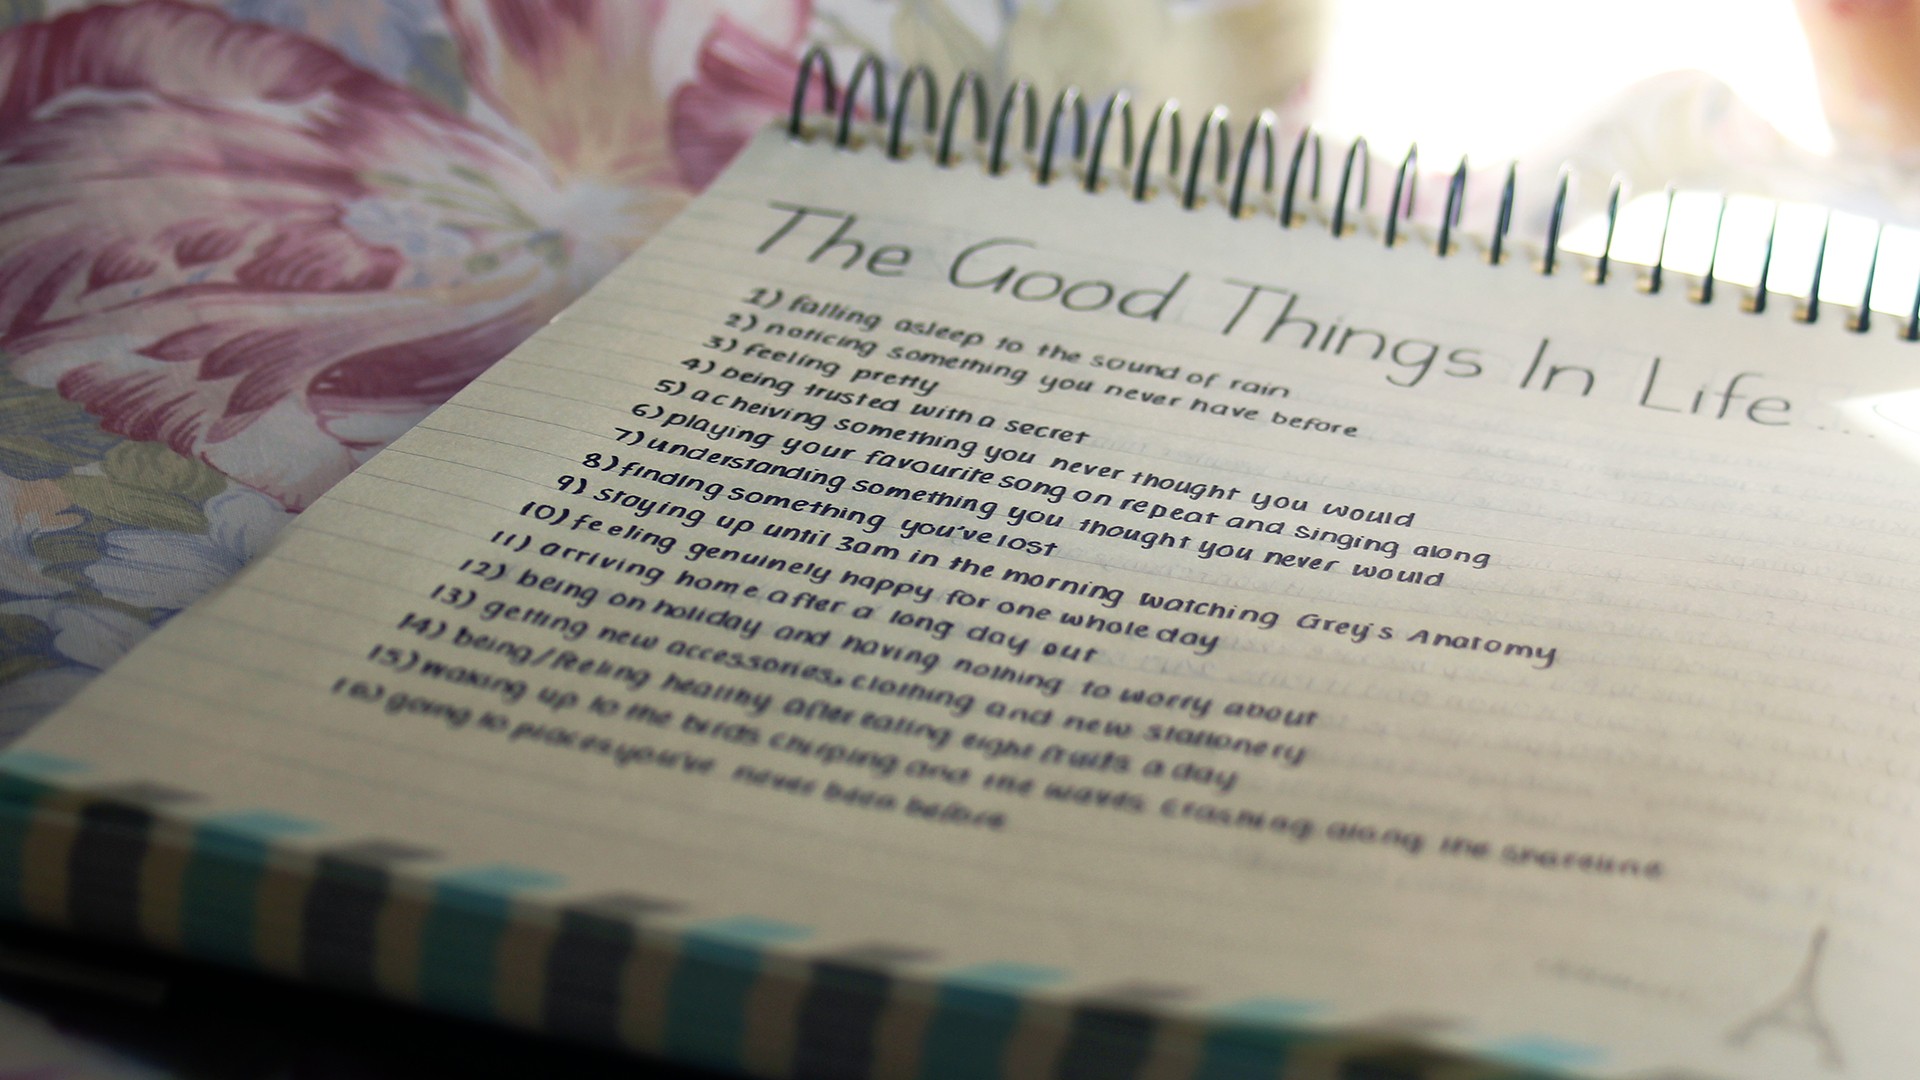 The Good Things In Life....
1) falling asleep to the sound of rain
2) noticing something you never have before
3) feeling pretty
4) being trusted with a secret
5) acheiving something you never thought you would
6) playing your favourite song on repeat and singing along
7) understanding something you thought you never would
8) finding something you've lost
9) staying up until 3am in the morning watching Grey's Anatomy
10) feeling genuinely happy for one whole day
11) arriving home after a long day out
12) being on holiday and having nothing to worry about
13) getting new accessories, clothing and new stationery
14) being/feeling healthy after eating eight fruits a day
15) waking up to the birds chirping and the waves crashing along the shoreline
16) going to places you've never been before